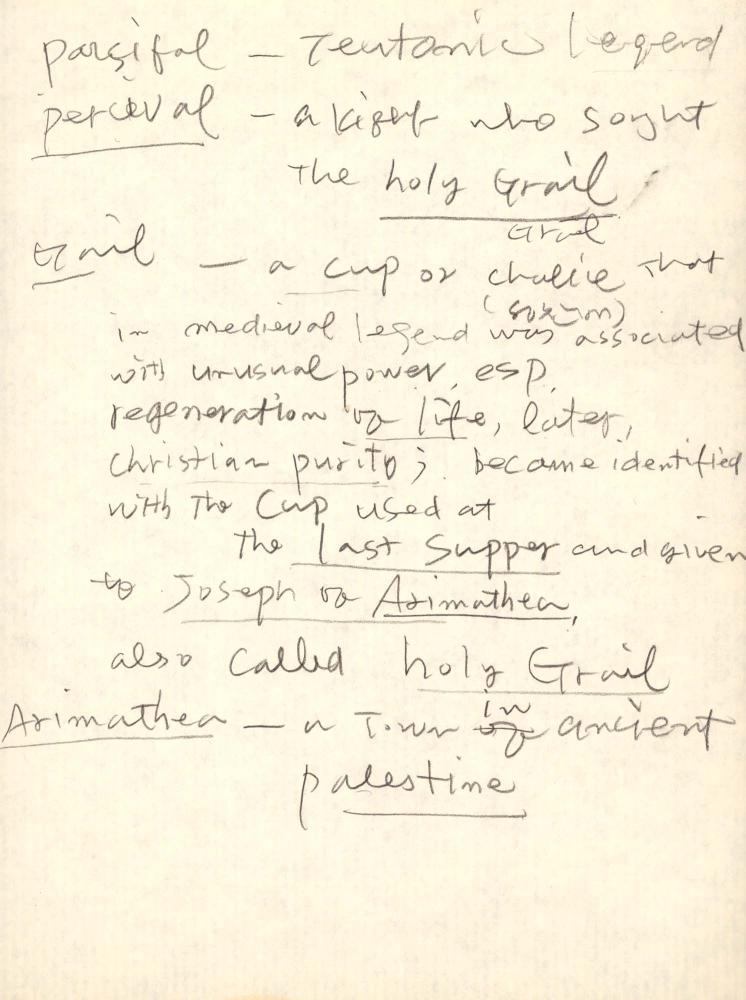 parsifal — Teutonic legend
perceval — a kight who soght
The holy Grail
Gral
Grail — a cup or chalice That
in medieval legend was associated
with unusual power, esp,
regeneration of life, later,
christian purity; became identified
with The Cup used at
The Last Supper and given
to Joseph of Arimathea,
also called holy Grail
Arimathea — a Town in ancient
palestine